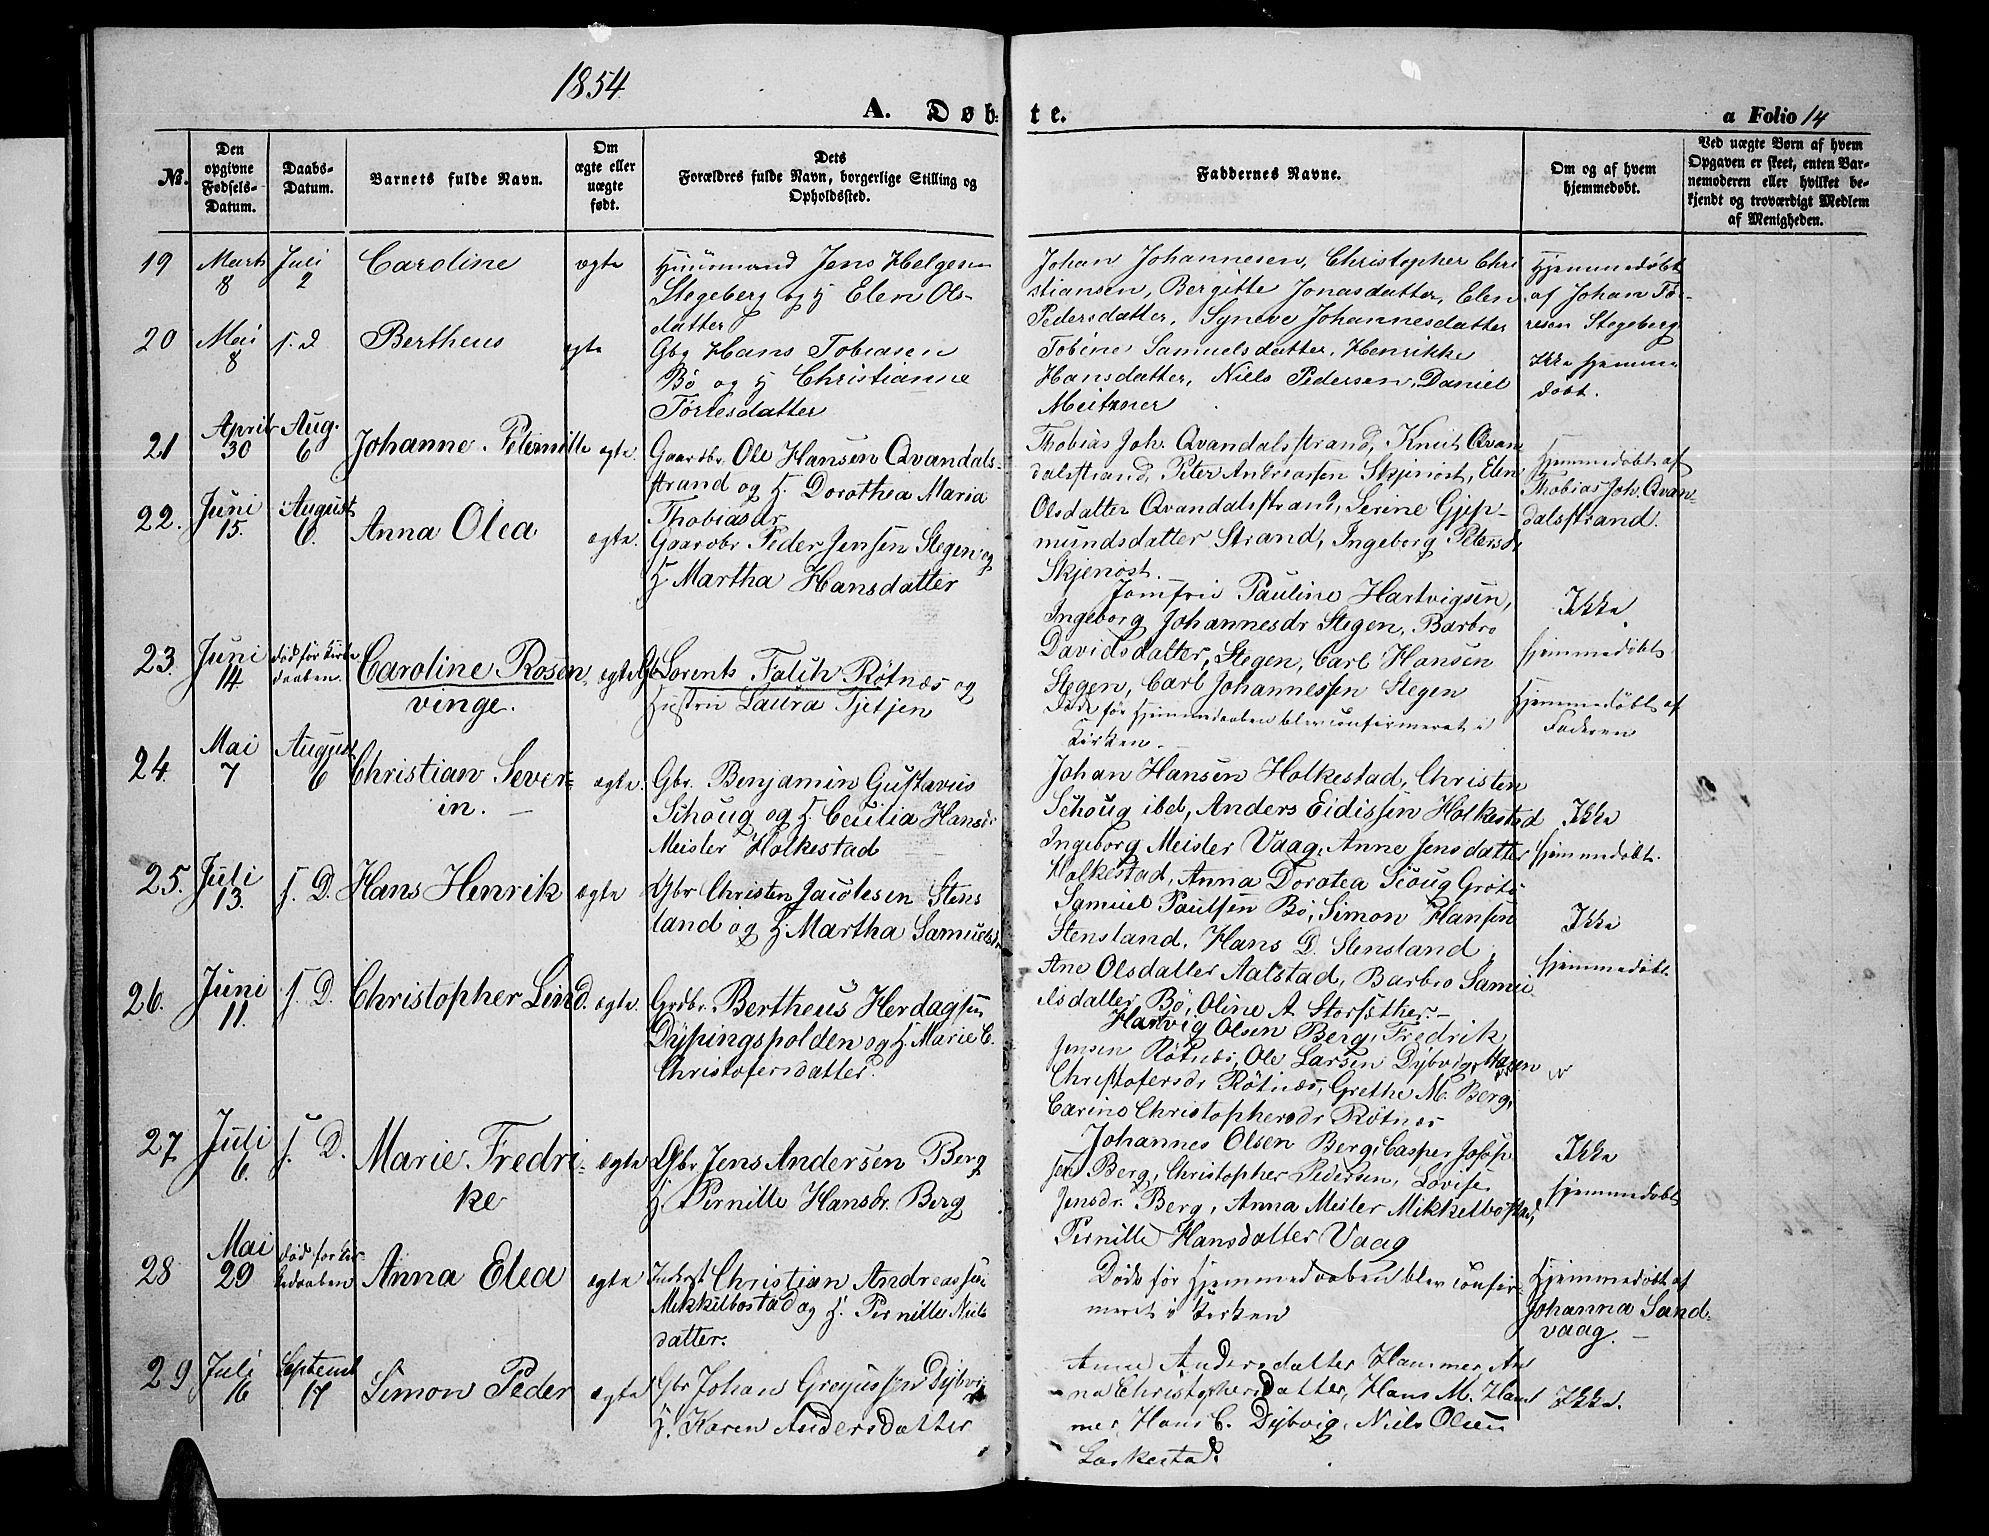 1854
A. Døb-
te.
a Folio 14
No.
Den opgivne Fødsels-Datum.
Daabs-Datum.
Barnets fulde Navn.
Om ægte eller uægte født.
Dets Forældres fulde Navn, borgerlige Stilling og Opholdssted.
Faddernes Navne.
Om og af hvem hjemmedøbt.
Ved uægte Børn af hvem Opgaven er skeet, enten Barnemoderen eller hvilket bekjendt og troværdigt Medlem af Menigheden.
19 Marts 8 Juli 2 Caroline ægte
Huusmand Jens Helgesen
Stegeberg og H Elen Ols-
datter
Johan Johannesen, Christopher Chri
stiansen, Bergitte Jonasdatter, Elen
Pedersdatter, Syneve Johannesdatter
Hjemmedøbt
af Johan To-
resen Stegeberg
20 Mai 8 s. d Bertheus ægte
Gbr Hans Tobiasen
Bø og H Christianne
Tørlesdatter
Tobine Samuelsdatter, Henrikke
Hansdatter, Niels Pedersen, Daniel
Meitzner
Ikke hjemme
døbt.
21 April 30 Aug. 6 Johanne Peternille ægte.
Gaardbr. Ole Hansen Qvandals-
strand og H. Dorothea Maria
Thobiasdr
Thobias Joh. Qvandalsstrand, Knut Qvan
dalsstrand, Peter Andreassen Skjenøst, Elen
Olsdatter Qvandalsstrand, Serine Gjep-
mundsdatter Strand, Ingeborg Petersdr
Skjenøst.
Hjemmedøbt af
Thobias Joh. Qvan-
dalsstrand.
22. Juni 15. August 6. Anna Olea ægte.
Gaardbr Peder Jensen Stegen og
H Martha Hansdatter
Jomfru Pauline Hartvigsen,
Ingeborg Johannesdr Stegen, Barbro
Davidsdatter, Stegen, Carl Hansen
Stegen, Carl Johannessen Stegen
Ikke
hjemmedøbt
23. Juni 14 død før Kirke
daaben. Caroline Rosen-
vinge. ægte
Gbr Lorents Falch Røtnæs og
Hustru Laura Tjetjen
Døde før Hjemmedaaben blev confirmeret i
Kirken.
Hjemmedøbt af
Faderen
24. Mai 7 August 6 Christian Sever-
in. ægte.
Gbr. Benjamin Gustavus
Schoug og H Cecilia Hansdr
Meisler Holkestad
Johan Hansen Holkestad, Christen
Schoug ibd, Anders Eidissen Holkestad
Ingeborg Meisler Vaag, Anne Jensdatter
Holkestad, Anna Dorotea Scoug Grøtø
Ikke
hjemmedøbt.
25. Juli 13. s. D. Hans Henrik ægte
Gbr Christen Jacobsen Stens
land og H Martha Samuelsdr
Samuel Paulsen Bø, Simon Hansen
Stensland, Hans D. Stensland,
Ane Olsdatter Aalstad, Barbro Samu
elsdatter Bø, Oline A Storsether
Ikke
hjemmedøbt
26. Juni 11. s. D. Christopher Lind. ægte.
Grdbr. Bertheus Herdagsen
Dypingspolden og H Marie C.
Christofersdatter.
Hartvig Olsen Berg, Fredrik
Jensen Røtnæs, Ole Larsen Dybvig, Maren
Christofersdr Røtnæs, Grethe M. Berg,
Carino Christophersdr Røtnæs
27 Juli 6. s. D. Marie Fredri-
ke ægte
Gbr, Jens Andersen Berg
H Pernille Hansdr. Berg
Johannes Olsen Berg, Casper Josep
sen Berg, Christopher Pedersen, Lovise
Jensdr. Berg, Anna Meisler Mikkelbostad,
Pernille Hansdatter Vaag
Ikke
hjemmedøbt
28 Mai 29 død for Kir-
kedaaben Anna Elea ægte
Inderst Christian Andreassen
Mikkelbostad og H. Pernille Niels
datter.
Døde før Hjemmedaaben blev confir-
meret i Kirken
Hjemmedøbt af
Johanna Sand-
vaag.
29 Juli 16 Septemb 17 Simon Peder ægte
Gbr Johan Greyussen Dybvi
H. Karen Andersdatter
Anne Andersdatter Hammer, An
na Christophersdatter, Hans M. Ham
mer, Hans C. Dybvig, Niels Olsen
Laskestad.
Ikke.